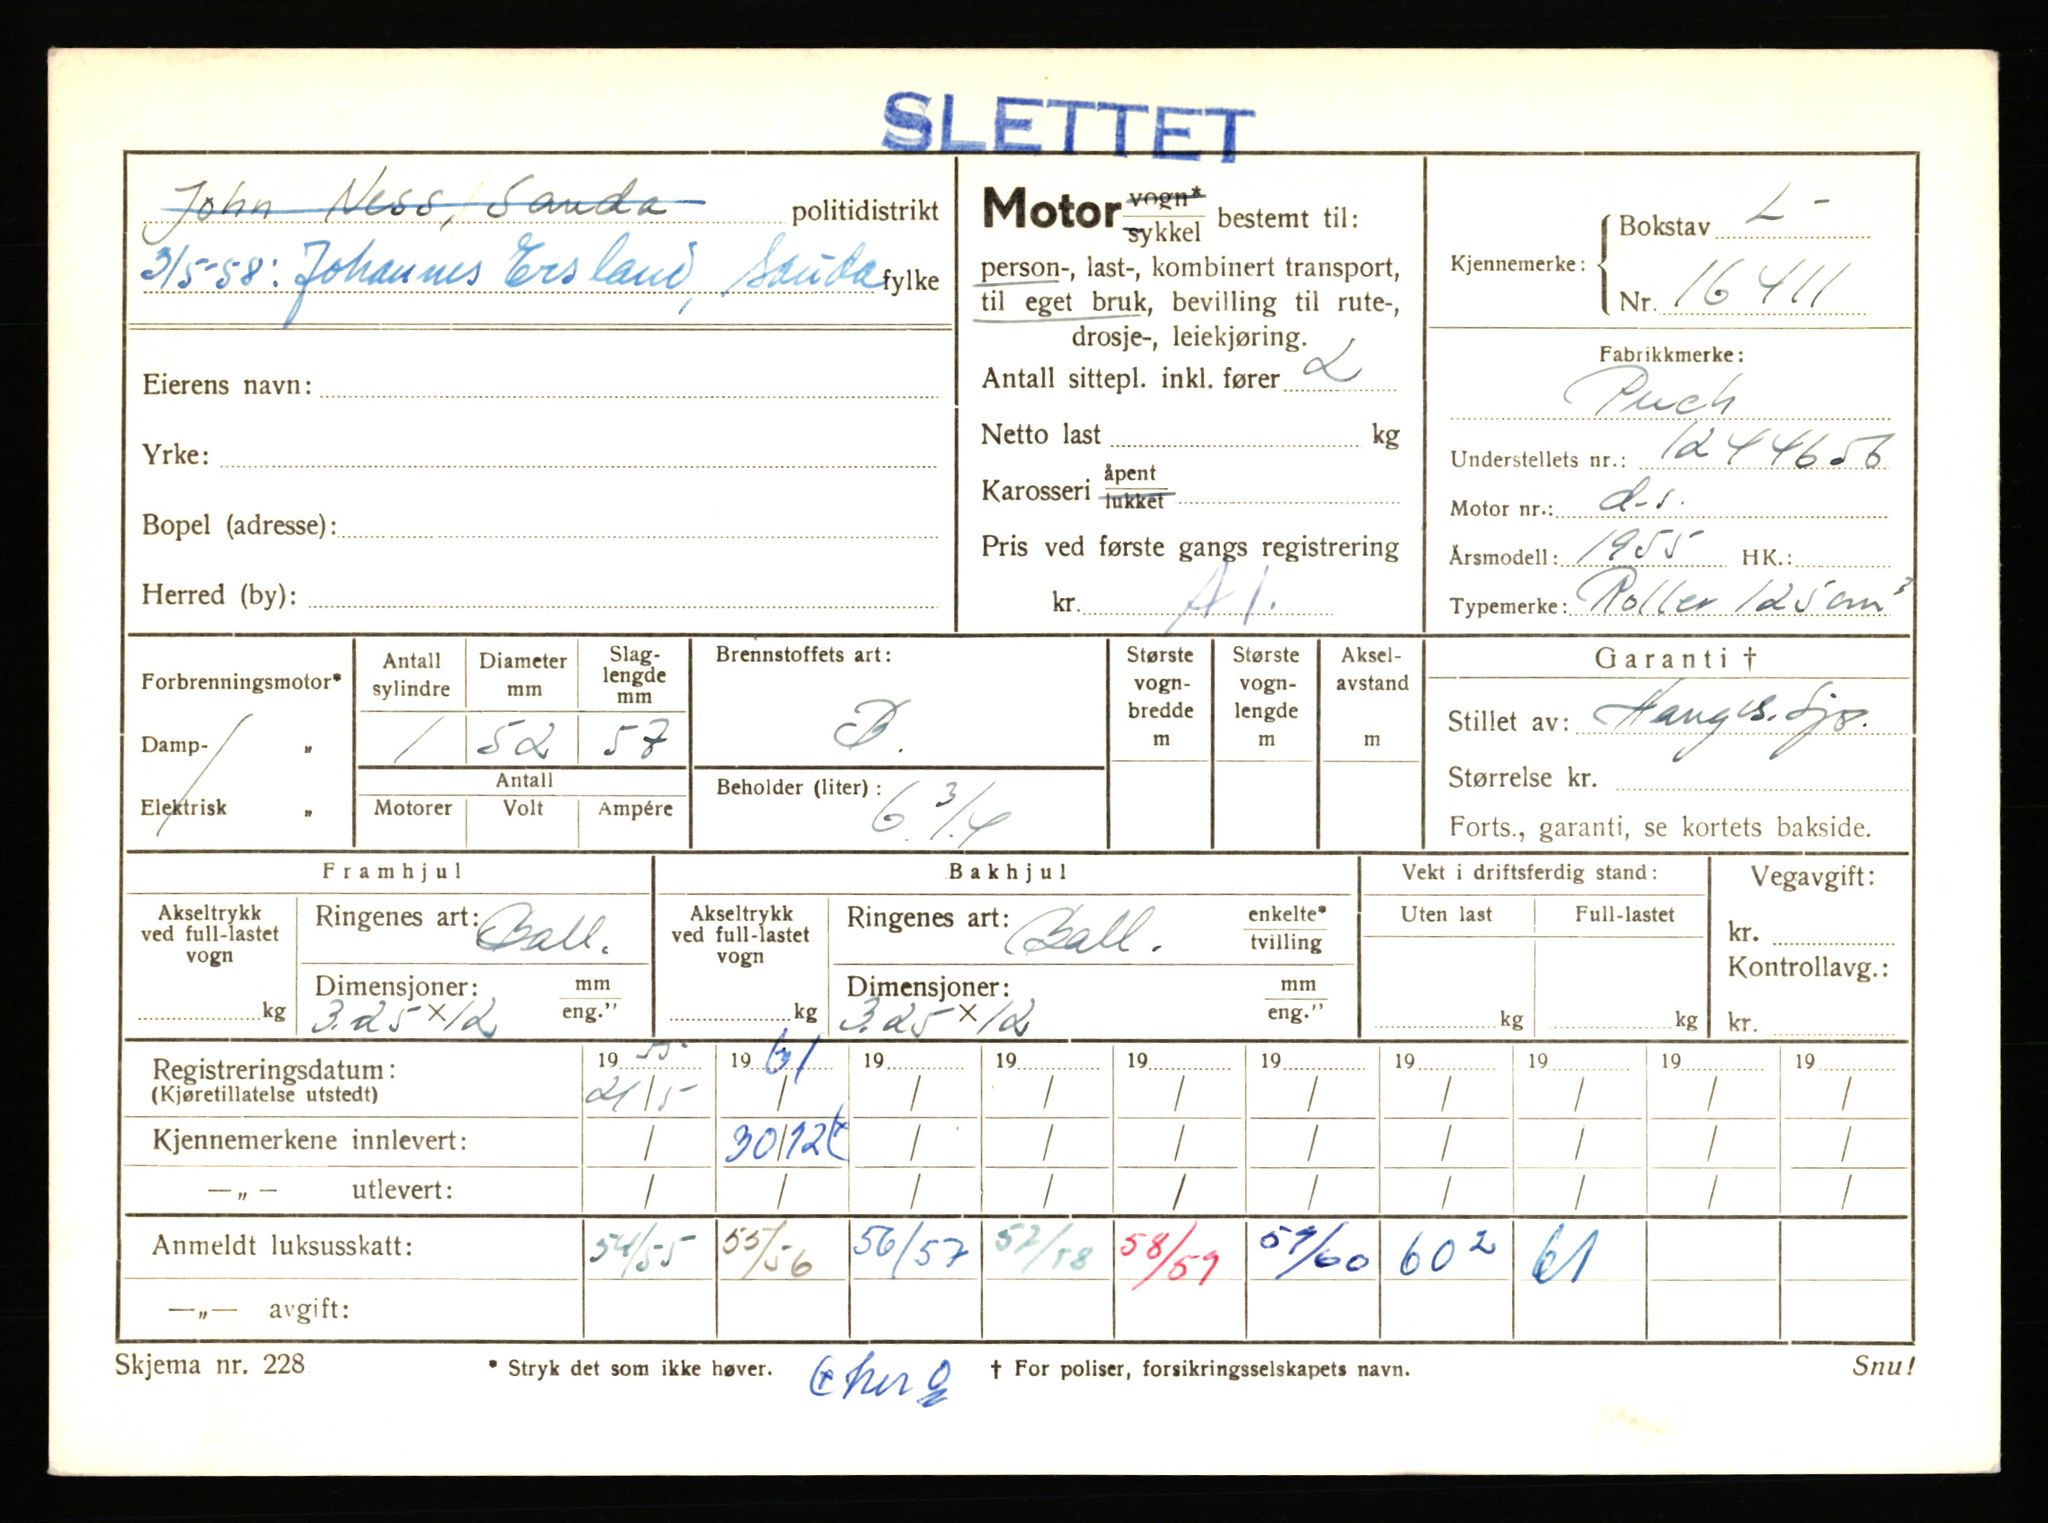 SLETTET
John Ness, Sauda politidistrikt
3/5-58: Johannes Ersland, Sauda fylke
Eierens navn:
Yrke:
Bopel (adresse):
Herred (by):
Motor vogn* / sykkel bestemt til:
person-, last-, kombinert transport,
til eget bruk, bevilling til rute-,
drosje-, leiekjøring.
Antall sittepl. inkl. fører 2
Netto last kg
Karosseri åpent / lukket
Pris ved første gangs registrering
kr. A 1.
Kjennemerke: Bokstav L-
Nr. 16411
Fabrikkmerke:
Puch
Understellets nr.: 1244656
Motor nr.: d.s.
Årsmodell: 1955 HK.:
Typemerke: Roller 125 cm³
Forbrenningsmotor*
Damp- „
Elektrisk „
Antall sylindre Diameter mm Slag-lengde mm
1 52 57
Antall
Motorer Volt Ampére
Brennstoffets art:
B.
Beholder (liter):
6 3/4
Største vogn-bredde m
Største vogn-lengde m
Aksel-avstand m
Garanti †
Stillet av:
Størrelse kr.
Forts., garanti, se kortets bakside.
Framhjul
Akseltrykk ved full-lastet vogn
kg
Ringenes art: Ball.
Dimensjoner: mm / eng."
3.25 x 12
Bakhjul
Akseltrykk ved full-lastet vogn
kg
Ringenes art: Ball. enkelte* / tvilling
Dimensjoner: mm / eng."
3.25 x 12
Vekt i driftsferdig stand:
Uten last Full-lastet
kg kg
Vegavgift:
kr.
Kontrollavg.:
kr.
Registreringsdatum: 1955 1961 19 19 19 19 19 19 19 19
(Kjøretillatelse utstedt) 21/5 / / / / / / / / /
Kjennemerkene innlevert: / 30/12 / / / / / / / /
—„— utlevert: / / / / / / / / / /
Anmeldt luksusskatt: 54/55 55/56 56/57 57/58 58/59 59/60 60² 61
—„— avgift:
Skjema nr. 228 * Stryk det som ikke høver. † For poliser, forsikringsselskapets navn. Snu!